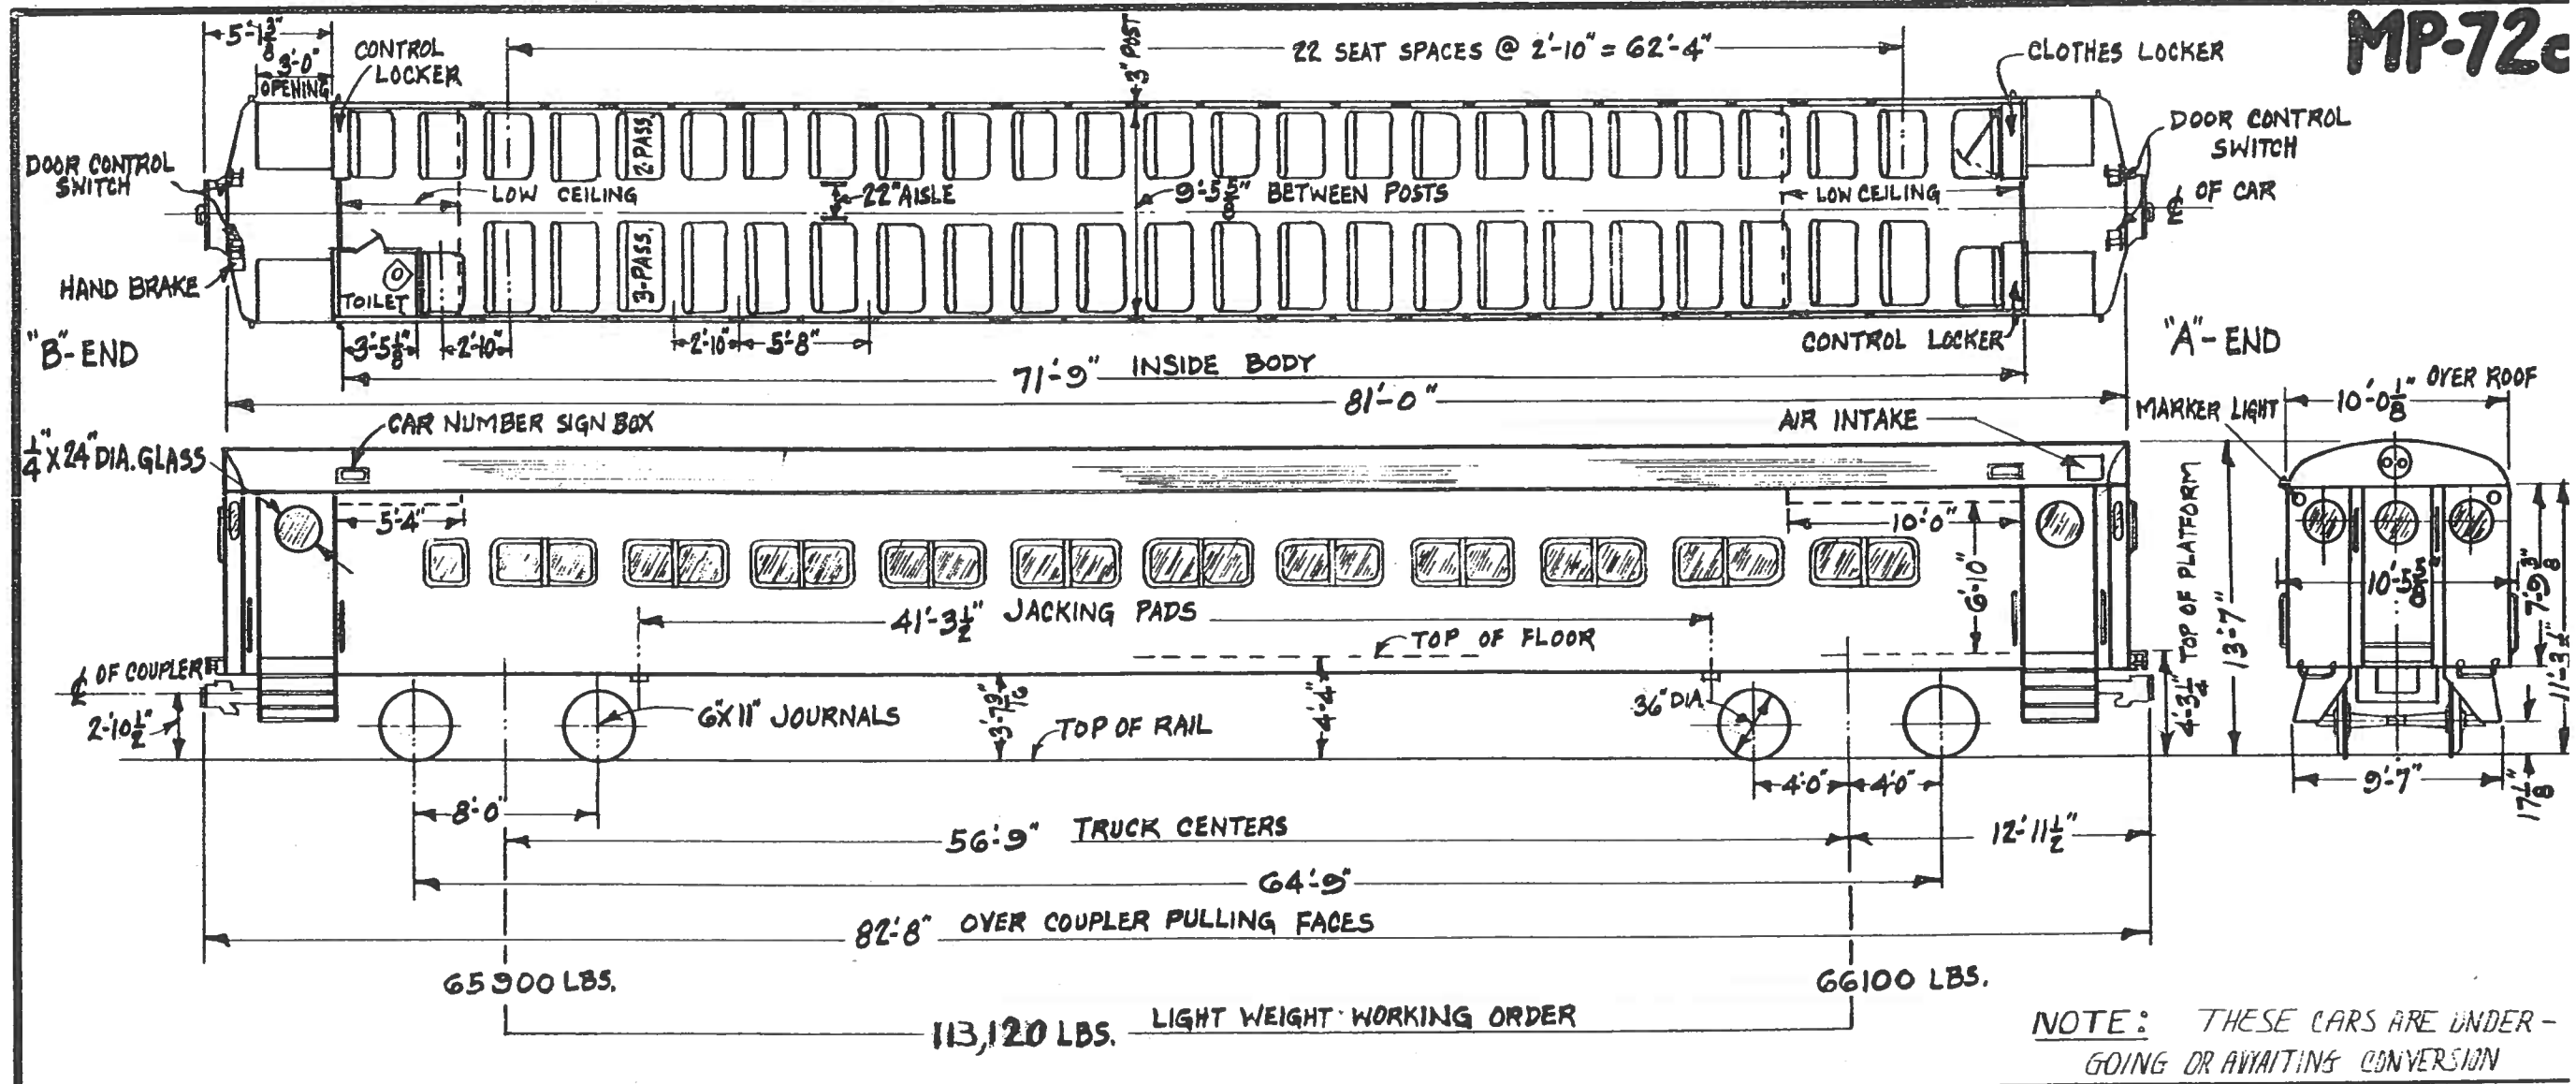 MP-72c
5'-1 3/8"
3'-0"
OPENING
CONTROL
LOCKER
3" POST
22 SEAT SPACES @ 2'-10" = 62'-4"
CLOTHES LOCKER
DOOR CONTROL
SWITCH
DOOR CONTROL
SWITCH
2-PASS.
LOW CEILING
22" AISLE
9'-5 5/8" BETWEEN POSTS
LOW CEILING
℄ OF CAR
3-PASS.
HAND BRAKE
TOILET
"B"-END
3'-5 1/8"
2'-10"
2'-10"
5'-8"
CONTROL LOCKER
"A"-END
71'-9" INSIDE BODY
81'-0"
10'-0 1/8" OVER ROOF
MARKER LIGHT
CAR NUMBER SIGN BOX
AIR INTAKE
1/4" X 24" DIA. GLASS
5'-4"
10'-0"
6'-10"
4'-3 1/4" TOP OF PLATFORM
13'-7"
10'-5/8"
7'-9 3/8"
11'-3 1/2"
41'-3 1/2" JACKING PADS
TOP OF FLOOR
℄ OF COUPLER
2'-10 1/2"
6" X 11" JOURNALS
3'-7 9/16"
TOP OF RAIL
4'-4"
36" DIA.
4'-0"
4'-0"
9'-7"
17 1/8"
8'-0"
56'-9" TRUCK CENTERS
12'-11 1/2"
64'-9"
82'-8" OVER COUPLER PULLING FACES
65900 LBS.
66100 LBS.
113,120 LBS. LIGHT WEIGHT WORKING ORDER
NOTE: THESE CARS ARE UNDER-
GOING OR AWAITING CONVERSION